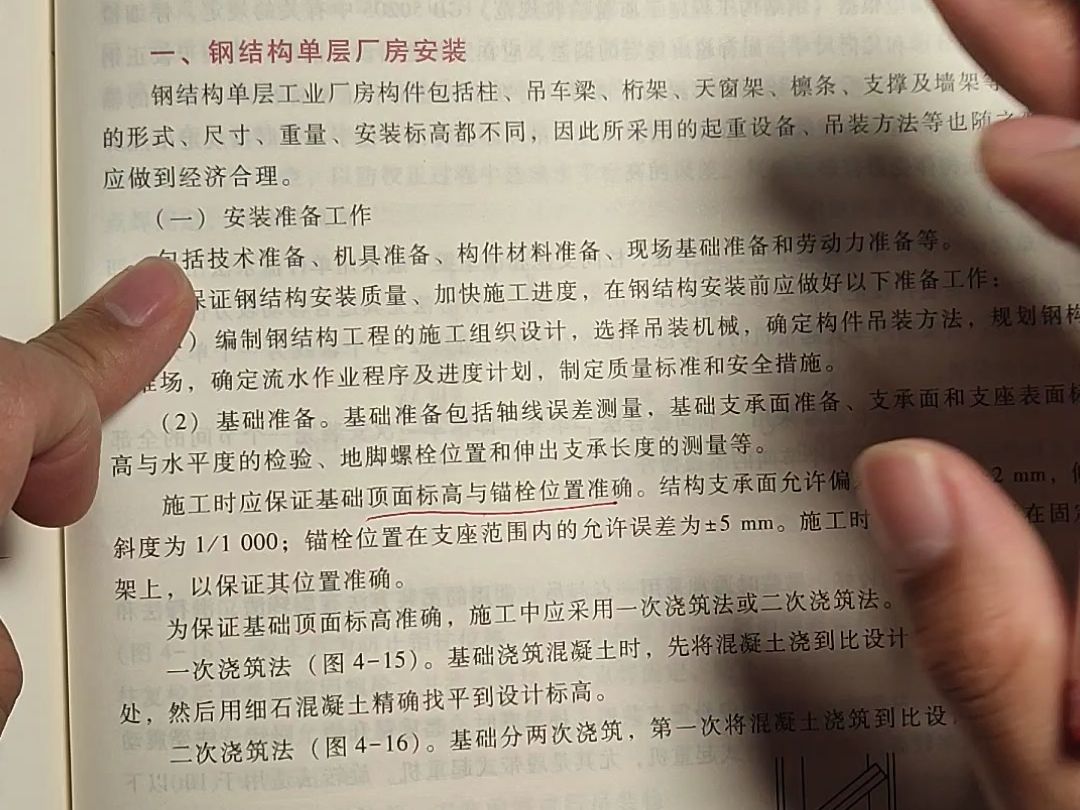 一、钢结构单层厂房安装
钢结构单层工业厂房构件包括柱、吊车梁、桁架、天窗架、檩条、支撑及墙架等
的形式、尺寸、重量、安装标高都不同，因此所采用的起重设备、吊装方法等也随之
应做到经济合理。
（一）安装准备工作
包括技术准备、机具准备、构件材料准备、现场基础准备和劳动力准备等。
保证钢结构安装质量、加快施工进度，在钢结构安装前应做好以下准备工作：
）编制钢结构工程的施工组织设计，选择吊装机械，确定构件吊装方法，规划钢构
堆场，确定流水作业程序及进度计划，制定质量标准和安全措施。
（2）基础准备。基础准备包括轴线误差测量，基础支承面准备、支承面和支座表面标
高与水平度的检验、地脚螺栓位置和伸出支承长度的测量等。
施工时应保证基础顶面标高与锚栓位置准确。结构支承面允许偏 2 mm，
斜度为 1/1 000；锚栓位置在支座范围内的允许误差为±5 mm。施工时 在固定
架上，以保证其位置准确。
为保证基础顶面标高准确，施工中应采用一次浇筑法或二次浇筑法。
一次浇筑法（图 4-15）。基础浇筑混凝土时，先将混凝土浇到比设计
处，然后用细石混凝土精确找平到设计标高。
二次浇筑法（图 4-16）。基础分两次浇筑，第一次将混凝土浇筑到比设